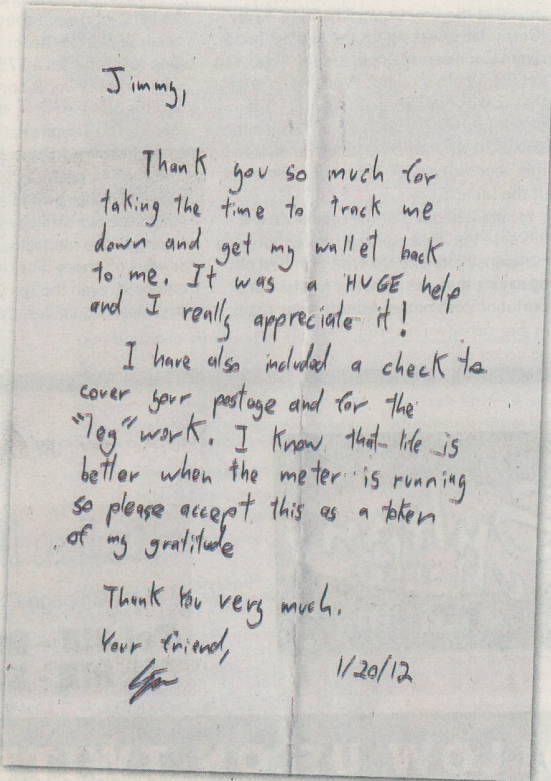 Jimmy,
Thank you so much for
taking the time to track me
down and get my wallet back
to me. It was a HUGE help
and I really appreciate it!
I have also included a check to
cover your postage and for the
"leg" work. I know that life is
better when the meter is running
so please accept this as a token
of my gratitude
Thank You very much.
Your friend,
1/20/12